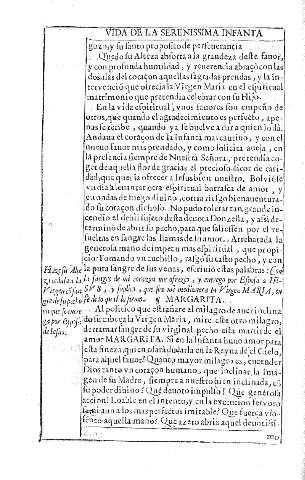 VIDA DE LA SERENISSIMA INFANTA
gozo, y su santo proposito de perseverancia
Quedò su Alteza absorta a la grandeza deste favor,
y con profunda humildad, y reverencia abraçò con las
dos alas del coraçon aquellas sagradas prendas, y la in-
tervencion que ofrecia la Virgen Maria en el espiritual
matrimonio que pretendia celebrar con su Hijo.
En la vida espiritual, unos favores son empeño de
otros, que quando el agradecimiento es perfecto, ape-
nas se recibe, quando ya se buelve a dar a quien lo dà.
Andava el coraçon de la Infanta mas cautivo, y con el
nuevo favor mas prendado, y como solicita aveja, en
la presencia siempre de Nuestra Señora, pretendia co-
ger de aquella flor de gracias el precioso licor de cari-
dad, que queria ofrecer a Jesus bien nuestro. Bolviòse
un dia a levantar otra espiritual borrasca de amor, y
en ondas de fuego divino, corria riesgo bienaventura-
do su coraçon dichoso. No pudo tolerar tan grande in-
cendio el debil sujeto desta devota Donzella, y assi de-
terminò de abrirse el pecho, para que saliessen por el re-
sueltas en sangre las llamas de su amor. Arrebatada la
generosa mano de impetu mas espiritual, que propi-
cio: Tomando un cuchillo, rasgò su casto pecho, y con
la pura sangre de sus venas, escriviò estas palabras: Con
la sangre de mi coraçon me ofrezco, y entrego por Esposa a IE-
SVS, y suplico, que por mi medianera la Virgen MARIA, en
fè de lo qual lo firmo. MARGARITA.
Al politico que estrañare el milagro de aver inclina-
do su cabeça la Virgen Maria, mire este otro milagro,
derramar sangre de su virginal pecho esta martir del
amor MARGARITA. Si en la Infanta huvo amor para
esta fineza, quien osarà dudarla en la Reyna del Cielo,
para aquel favor? Quanto mayor milagro es, entender
Dios tanto un coraçon humano, que inclinar la Ima-
gen de su Madre, siempre a nuestro bien inclinada, es
su poder divino? Què devoto impulso! Què generosa
accion! Loable en el intento, y en la execucion fervoro-
sa aun a los mas perfectos imitable? Que fuerça vio-
lentò aquella mano? Que azero abriò aquel devotissi-
mo